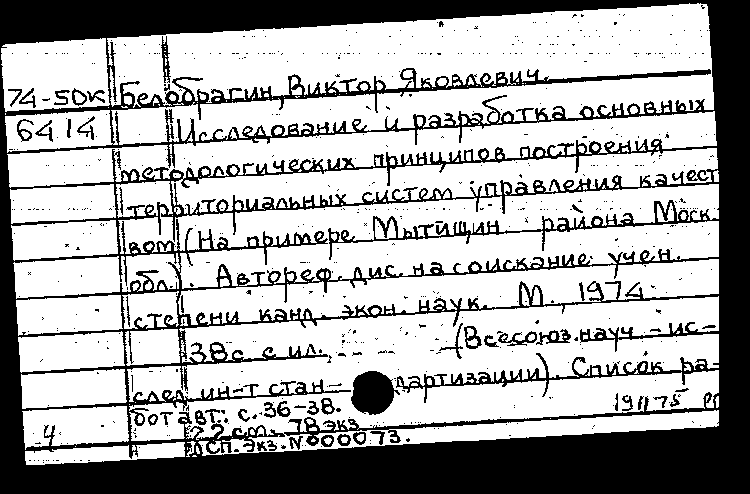 74-5ДК Белобрагин, Виктор Яковлевич.
6414 Исследование и разработка основных
методологических принципов построения
территориальных систем управления качест
вом (На примере Мытищин. района Моск.
обл.). Автореф. дис. на соискание учен.
степени канд. экон. наук. М., 1974.
38с. с ил. (Всесоюз. науч.-ис-
след. ин-т стандартизации). Список ра-
бот авт.: с. 36-38.
22 см. 78 экз.
4 ДСП. Экз. №00073.